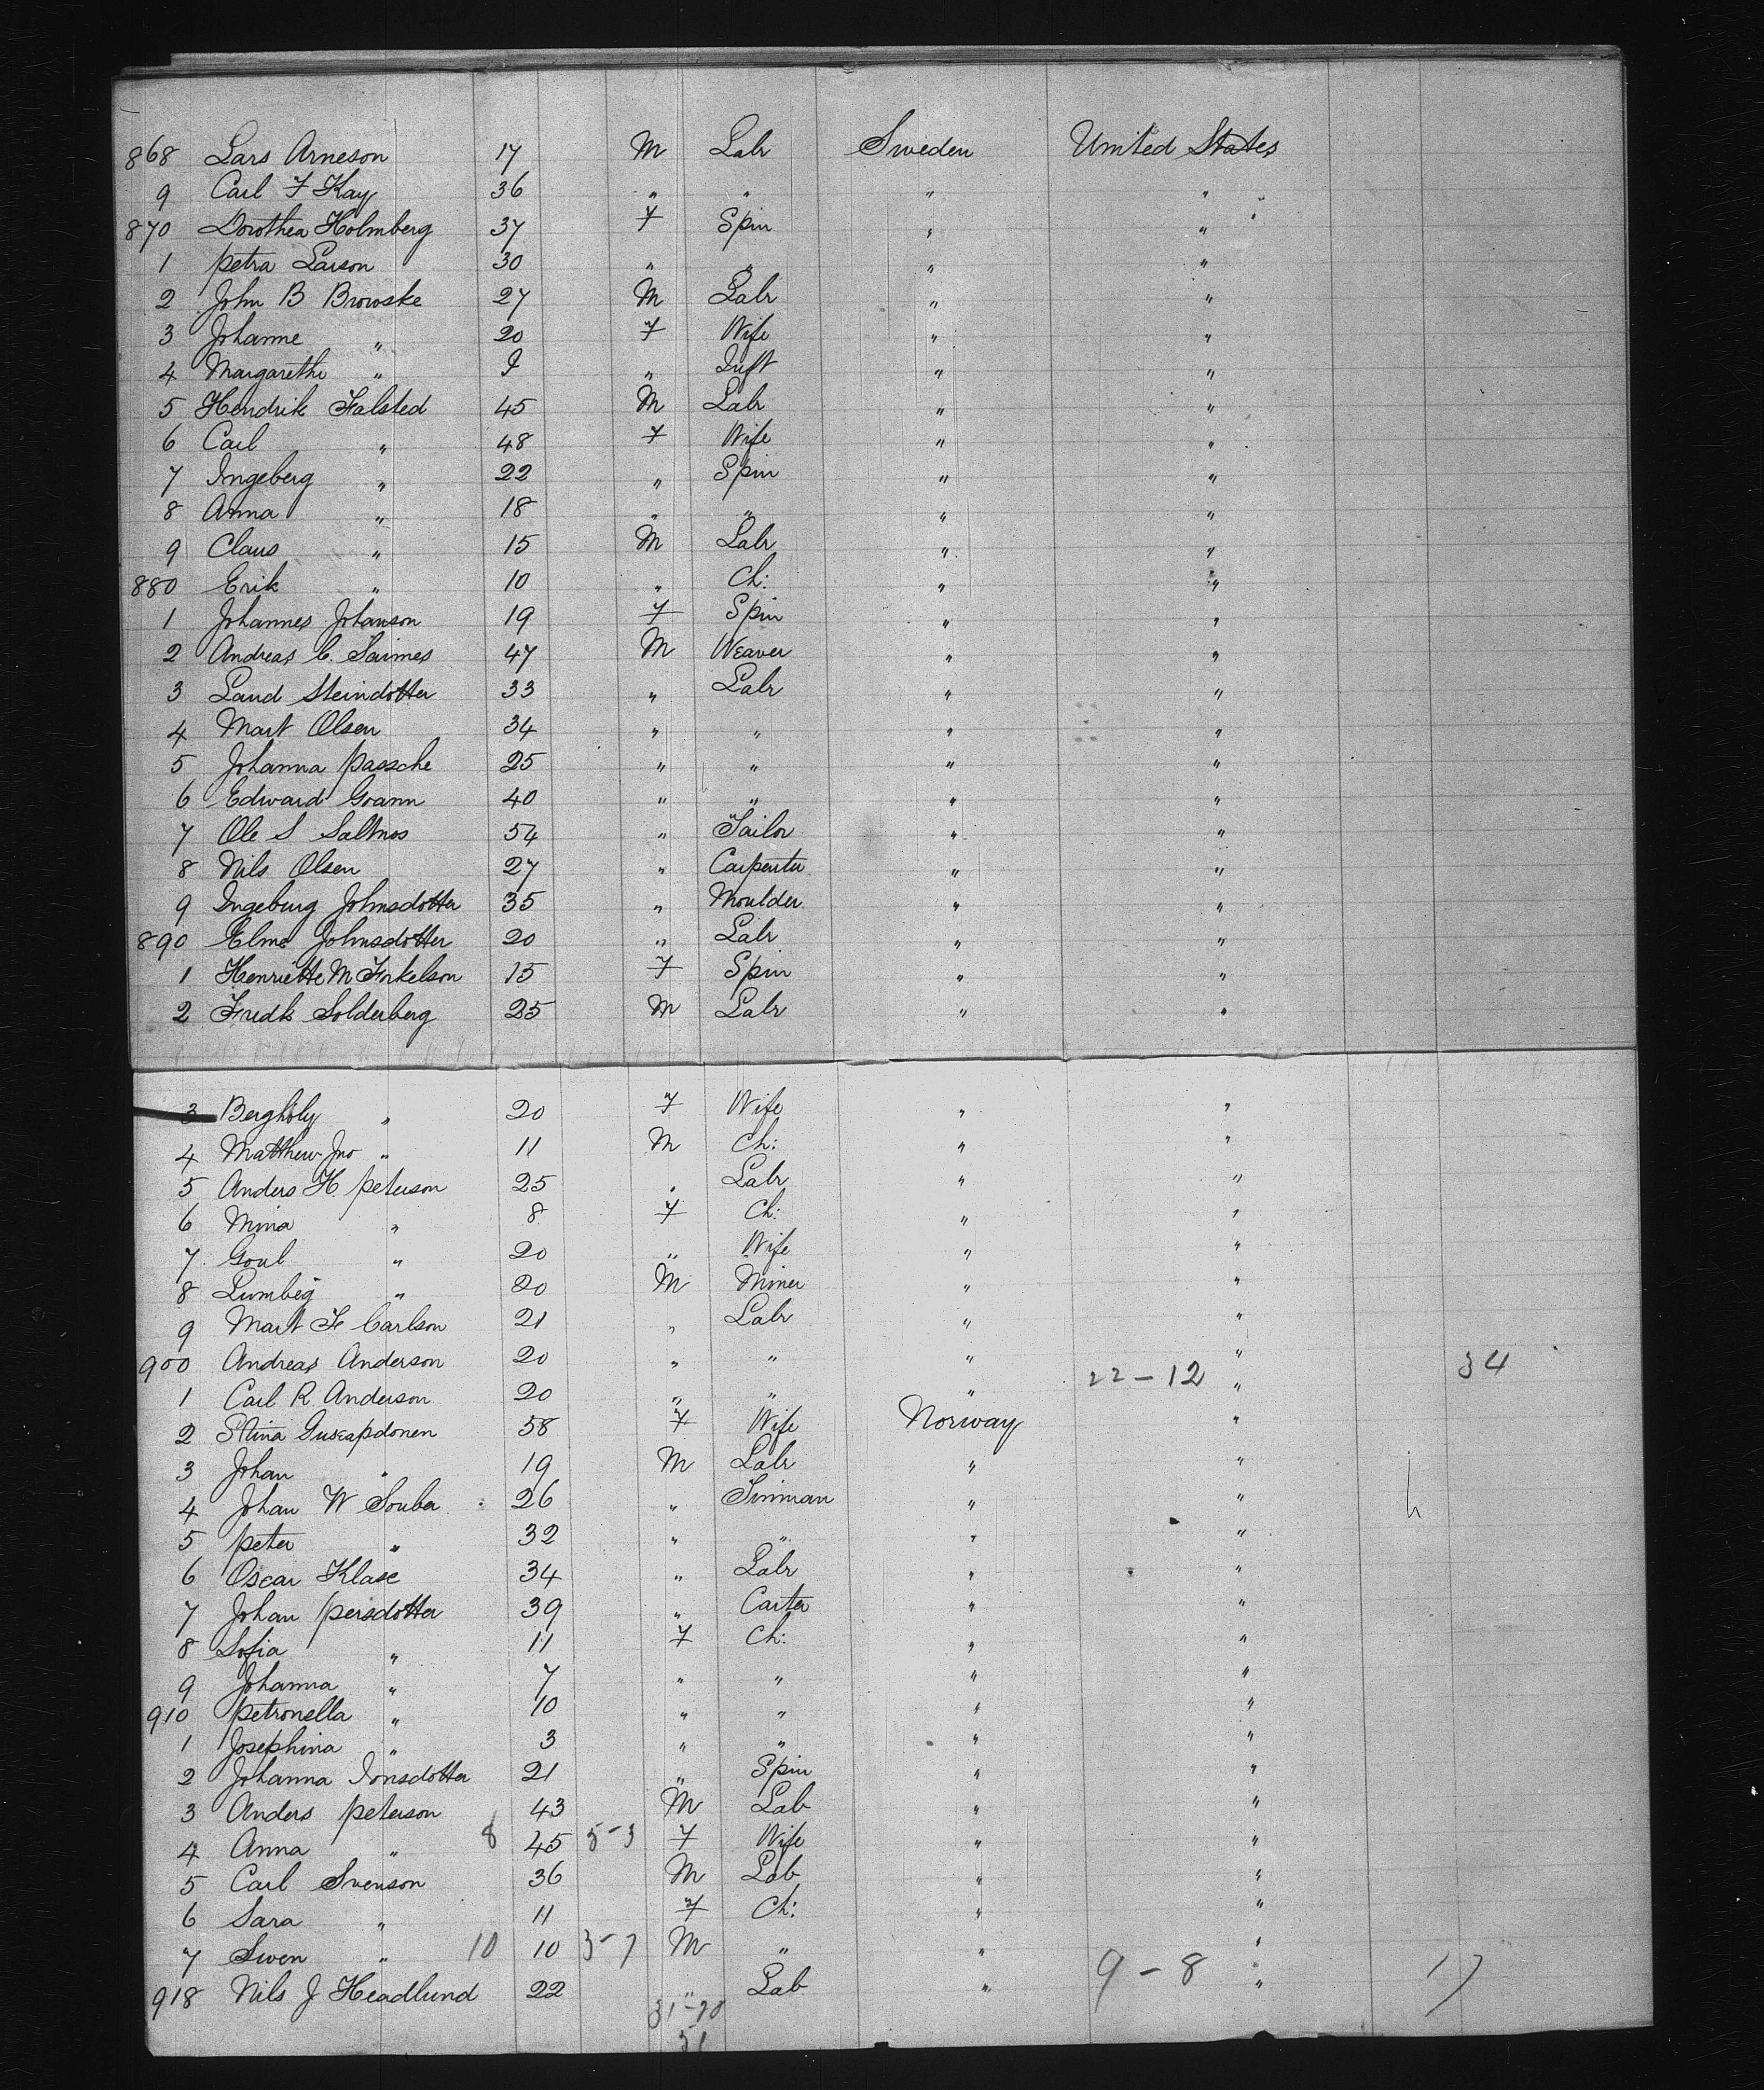 868 Lars Arneson 17 M Labr Sweden United States
9 Carl F Kay 36 " " " "
870 Dorothea Holmberg 37 F Spin " "
1 petra Larson 30 " " " "
2 John B Browske 27 M Labr " "
3 Johanne " 20 F Wife " "
4 Margarethe " 9 " Inft " "
5 Hendrik Falsted 45 M Labr " "
6 Carl " 48 F Wife " "
7 Ingeberg " 22 " Spin " "
8 Anna " 18 " " " "
9 Claus " 15 M Labr " "
880 Erik " 10 " Ch: " "
1 Johannes Johanson 19 F Spin " "
2 Andreas C. Saimes 47 M Weaver " "
3 Laud Steindotter 33 " Labr " "
4 Mart Olsen 34 " " " "
5 Johanna passche 25 " " " "
6 Edward Goann 40 " " " "
7 Ole S Saltnos 54 " Tailor " "
8 Nils Olsen 27 " Carpenter " "
9 Ingeburg Johnsdotter 35 " Moulder " "
890 Elme Johnsdotter 20 " Labr " "
1 Henriette M Forkelson 15 F Spin " "
2 Fredk Solderberg 25 M Labr " "
3 Bergholy " 20 F Wife " "
4 Matthew Jno " 11 M Ch: " "
5 Anders H. peterson 25 " Labr " "
6 Mina " 8 F Ch: " "
7 Goul " 20 " Wife " "
8 Lumbeg " 20 M Miner " "
9 Mart F Carlson 21 " Labr " "
900 Andreas Anderson 20 " " " " 34
1 Carl R Anderson 20 " " " 22-12 "
2 Stina Guseapdonen 58 F Wife Norway "
3 Johan " 19 M Labr " "
4 Johan W Souba 26 " Tinman " "
5 peter " 32 " " " "
6 Oscar Klase 34 " Labr " "
7 Johan persdotter 39 " Carter " "
8 Sofia " 11 F Ch: " "
9 Johanna " 7 " " " "
910 petronella " 10 " " " "
1 Josephina " 3 " " " "
2 Johanna Jonsdotter 21 " Spin " "
3 Anders peterson 43 M Lab " "
4 Anna " 8 45 5-3 F Wife " "
5 Carl Svenson 36 M Lab " "
6 Sara " 11 F Ch: " "
7 Swen " 10 10 3-7 M " " "
918 Nils J Headlund 22 " Lab " 9-8 " 17
31-20
51